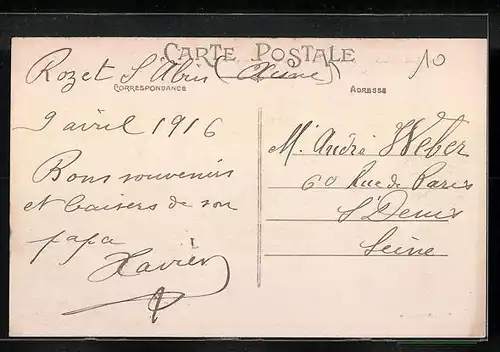 CARTE POSTALE
10
Rozet St Albin (Aisne)
CORRESPONDANCE
ADRESSE
9 avril 1916
Bons souvenirs
et baisers de son
papa
Xavier
Mr André Weber
60 Rue de Paris
St Denis
Seine